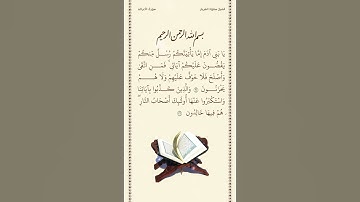 بسم الله الرحمن الرحيم
يَا بَنِي آدَمَ إِمَّا يَأْتِيَنَّكُمْ رُسُلٌ مِنْكُمْ
يَقُصُّونَ عَلَيْكُمْ آيَاتِي فَمَنِ اتَّقَى
وَأَصْلَحَ فَلَا خَوْفٌ عَلَيْهِمْ وَلَا هُمْ
يَحْزَنُونَ وَالَّذِينَ كَذَّبُوا بِآيَاتِنَا
وَاسْتَكْبَرُوا عَنْهَا أُولَئِكَ أَصْحَابُ النَّارِ
هُمْ فِيهَا خَالِدُونَ